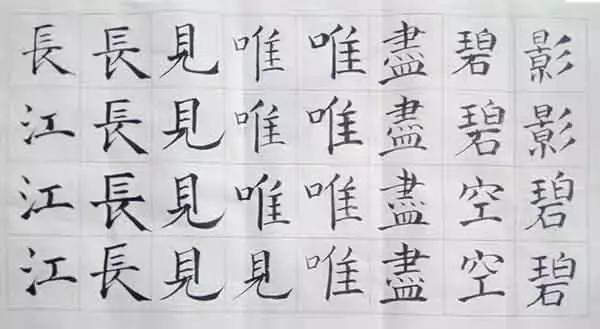 影影碧碧
碧碧空空
盡盡盡盡
唯唯唯唯
唯唯唯見
見見見見
長長長長
長江江江